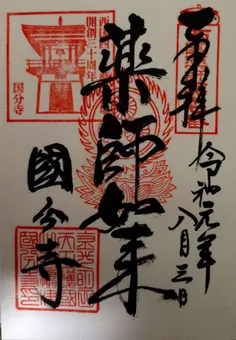 奉拝
令和元年
八月三日
薬師如来
國分寺
開創三十周年
国分寺